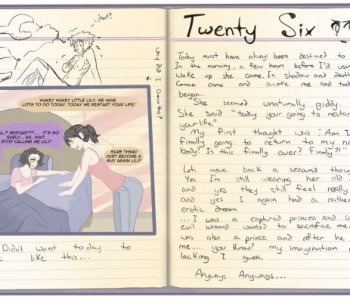 WAKEY WAKEY LITTLE LILY. WE HAVE
LOTS TO DO TODAY. TODAY WE RESTART YOUR LIFE!
RESTART?... IT'S SO
EARLY... NO, WAIT,
STOP CALLING ME LILY!
SURE THING!
JUST BECOME A
BUY AGAIN LILY!
I Didn't want today to
be like this...
Twenty Six
Today must have always been destined to
In the morning, a few hours before I'd
wake up she came. In shadow and
Grace came and awoke me and
began.
"She seemed unnaturally giddy.
She said "today your going to restart
your life"
My first thought was: Am I
finally going to return to my
body? Is this finally over? Finally?"
Lets move back a second though
Yes I'm still wearing her old
and yes they still feel really
and yes I again had a rather
erotic dream
...I was a captured princess and
evil wizard wanted to sacrifice me.
was also a prince and after he
me... you know? my imagination
lacking I guess.
Anyways Anyways...